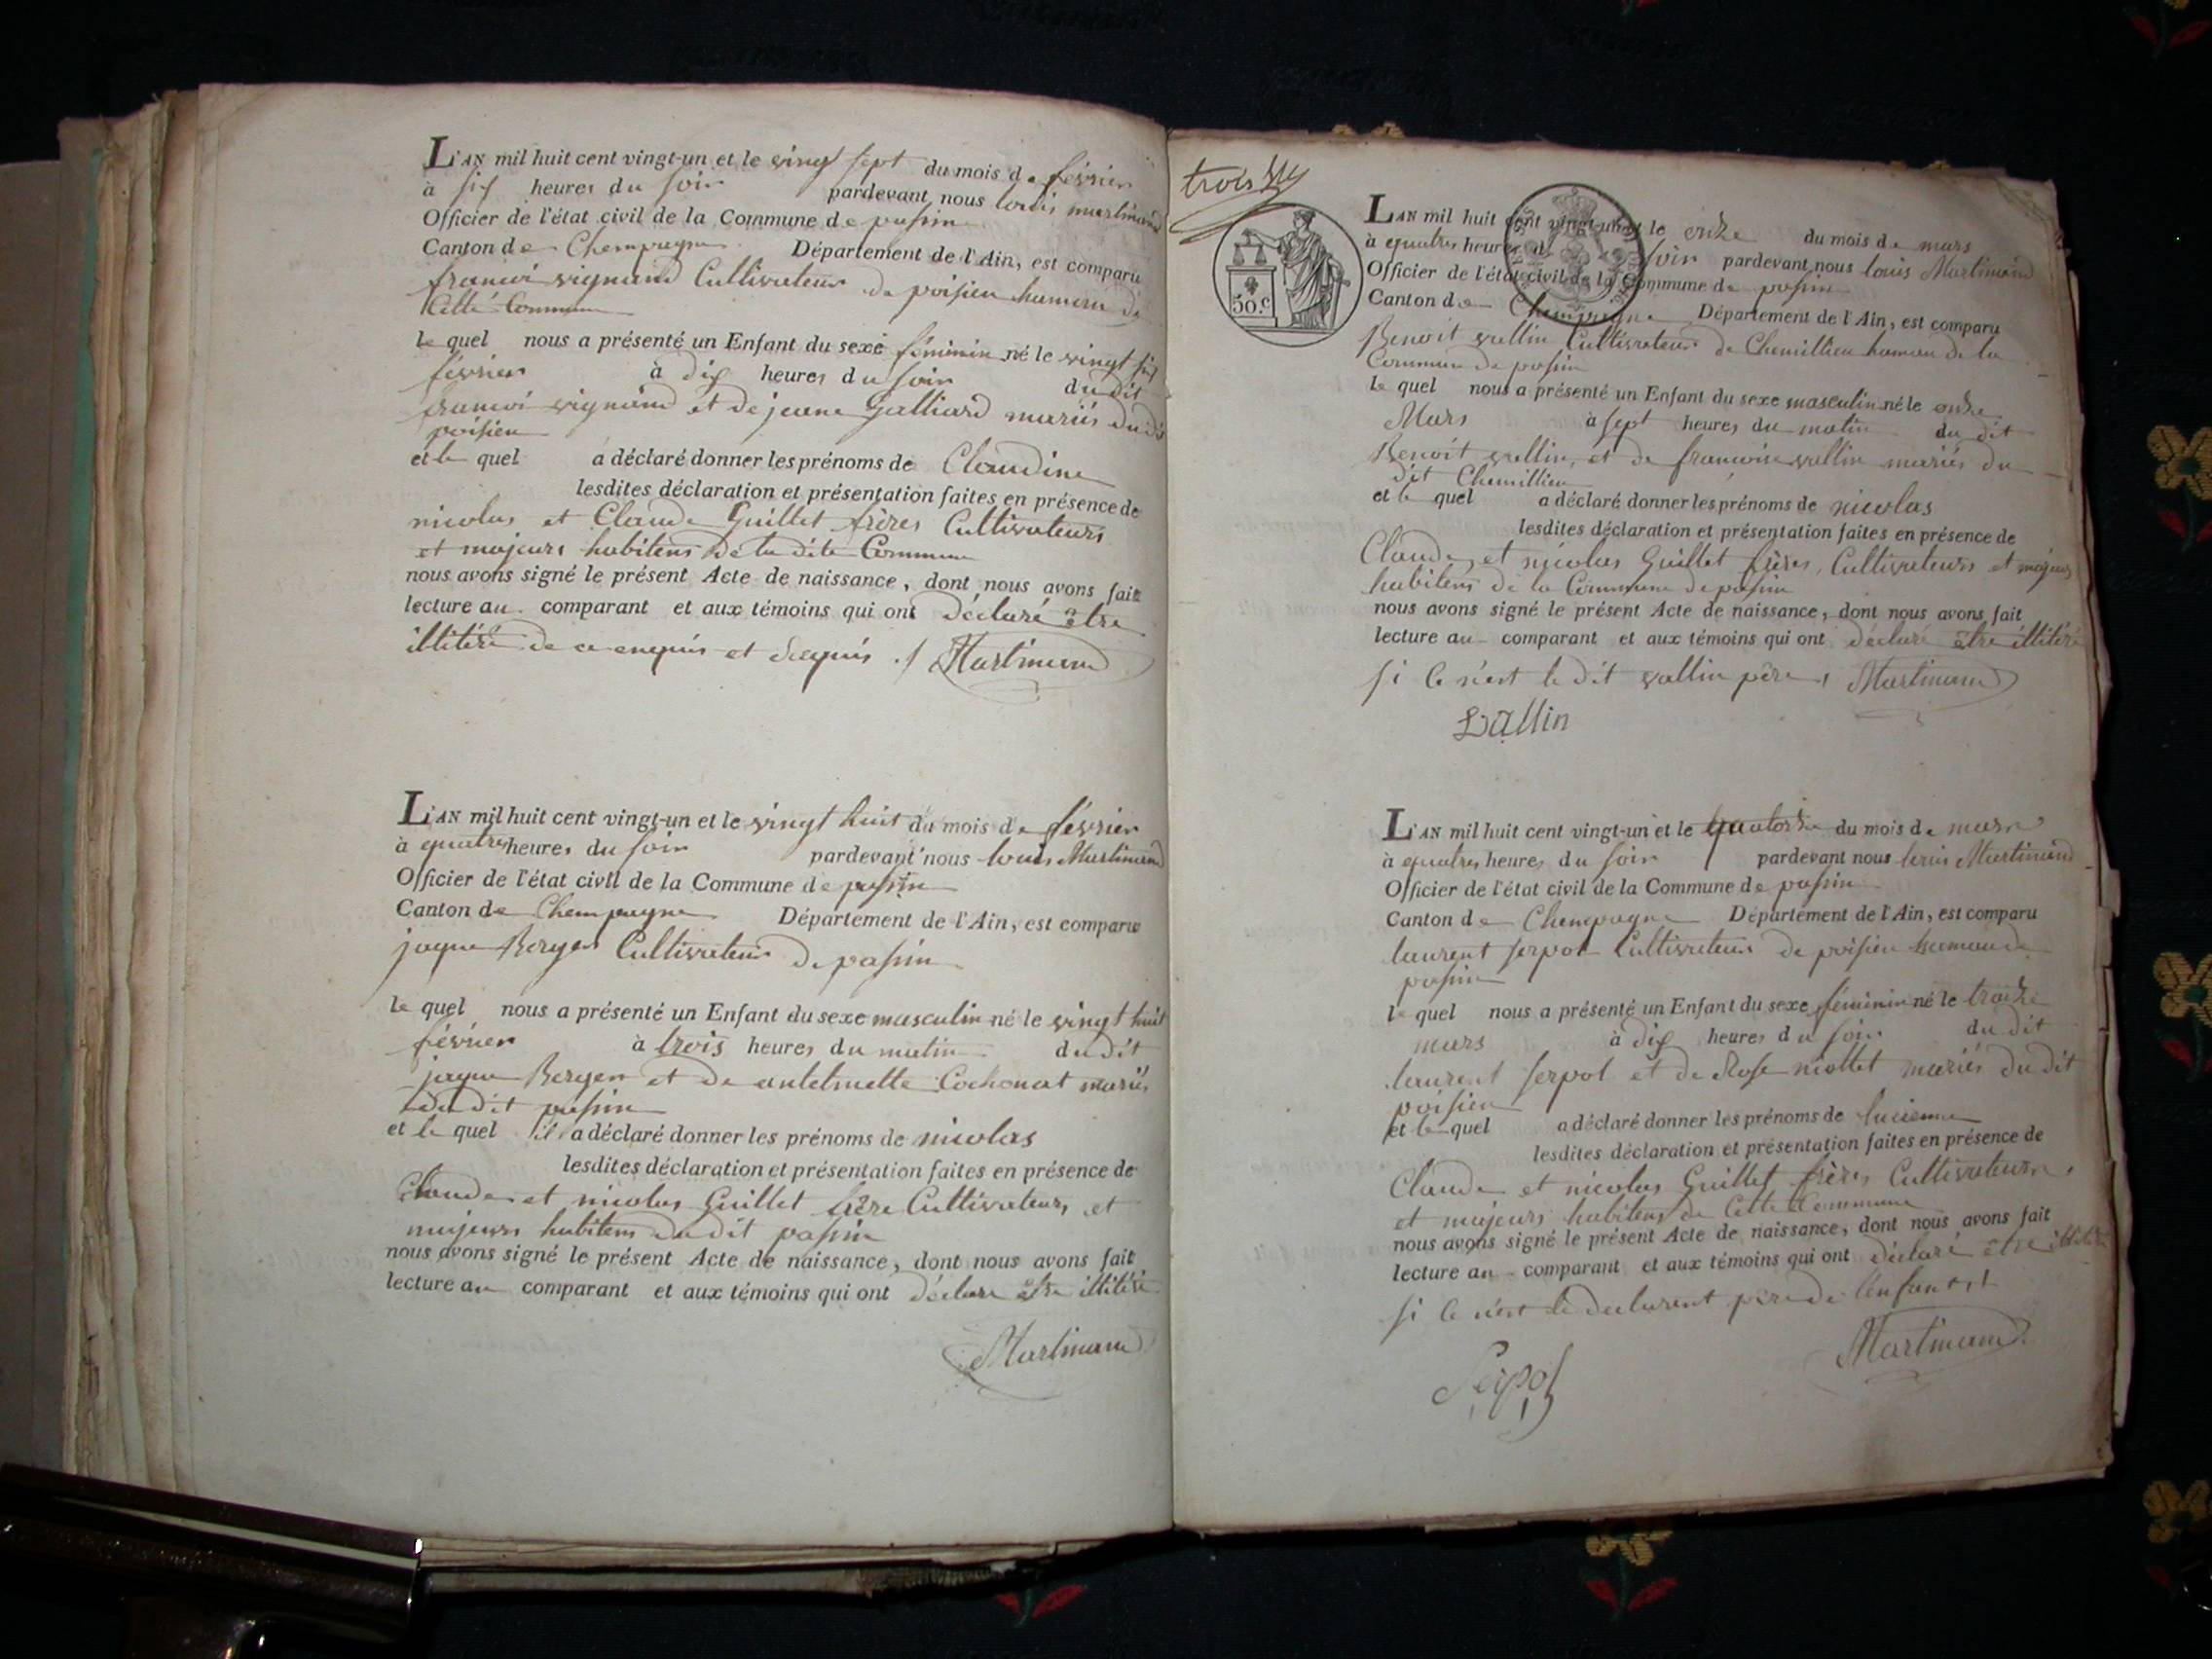 L'AN mil huit cent vingt-un et le vingt sept du mois de février
à six heures du soir pardevant nous louis martinand
Officier de l'état civil de la Commune de passin
Canton de Chempagne Département de l'Ain, est comparu
francoi vignand Cultivateur de poisieu hameau de
Cette Commune
le quel nous a présenté un Enfant du sexe féminin né le vingt six
février à dix heures du soir du dit
francoi vignand et de jeane Galliard mariés du dit
poisieu
et le quel a déclaré donner les prénoms de Claudine
lesdites déclaration et présentation faites en présence de
nicolas et Claude Guillet frères Cultivateurs
et majeurs habitens de la dite Commune
nous avons signé le présent Acte de naissance, dont nous avons fait
lecture au comparant et aux témoins qui ont déclaré être
illitéré de ce enquis et Martinand
L'AN mil huit cent vingt-un et le vingt huit du mois de février
à quatres heures du soir pardevant nous louis Martinand
Officier de l'état civil de la Commune de passin
Canton de Chempagne Département de l'Ain, est comparu
jaque Berger Cultivateur de passin
le quel nous a présenté un Enfant du sexe masculin né le vingt huit
février à trois heures du matin du dit
jaque Berger et de antelmette Cochonat mariés
du dit passin
et le quel il a déclaré donner les prénoms de nicolas
lesdites déclaration et présentation faites en présence de
Claude et nicolas Guillet frère Cultivateurs et
majeurs habitens du dit passin
nous avons signé le présent Acte de naissance, dont nous avons fait
lecture au comparant et aux témoins qui ont déclaré être illitéré
Martinand
trois
50.c
L'AN mil huit cent vingt-un et le onze du mois de mars
à quatres heures du soir pardevant nous louis Martinand
Officier de l'état civil de la Commune de passin
Canton de Chempagne Département de l'Ain, est comparu
Benoit vallin Cultivateur de Chemillieu hameau de la
Commune de passin
le quel nous a présenté un Enfant du sexe masculin né le onze
Mars à sept heures du matin du dit
Benoit vallin, et de francoise vallin mariés du
dit Chemillieu
et le quel a déclaré donner les prénoms de nicolas
lesdites déclaration et présentation faites en présence de
Claude et nicolas Guillet frères, Cultivateurs et majeurs
habitens de la Commune de passin
nous avons signé le présent Acte de naissance, dont nous avons fait
lecture au comparant et aux témoins qui ont déclaré être illitéré
si ce n'est le dit vallin père Martinand
Vallin
L'AN mil huit cent vingt-un et le quatorze du mois de mars
à quatres heures du soir pardevant nous louis Martinand
Officier de l'état civil de la Commune de passin
Canton de Chempagne Département de l'Ain, est comparu
laurent serpol Cultivateur de poisieu hameau de
passin
le quel nous a présenté un Enfant du sexe féminin né le treize
mars à dix heures du soir du dit
laurent serpol et de Rose niollet mariés du dit
poisieu
et le quel a déclaré donner les prénoms de lucienne
lesdites déclaration et présentation faites en présence de
Claude et nicolas Guillet frères Cultivateurs
et majeurs habitens de Cette Commune
nous avons signé le présent Acte de naissance, dont nous avons fait
lecture au comparant et aux témoins qui ont déclaré être illitéré
si ce n'est le declarent père de l'enfant
Martinand
Serpol